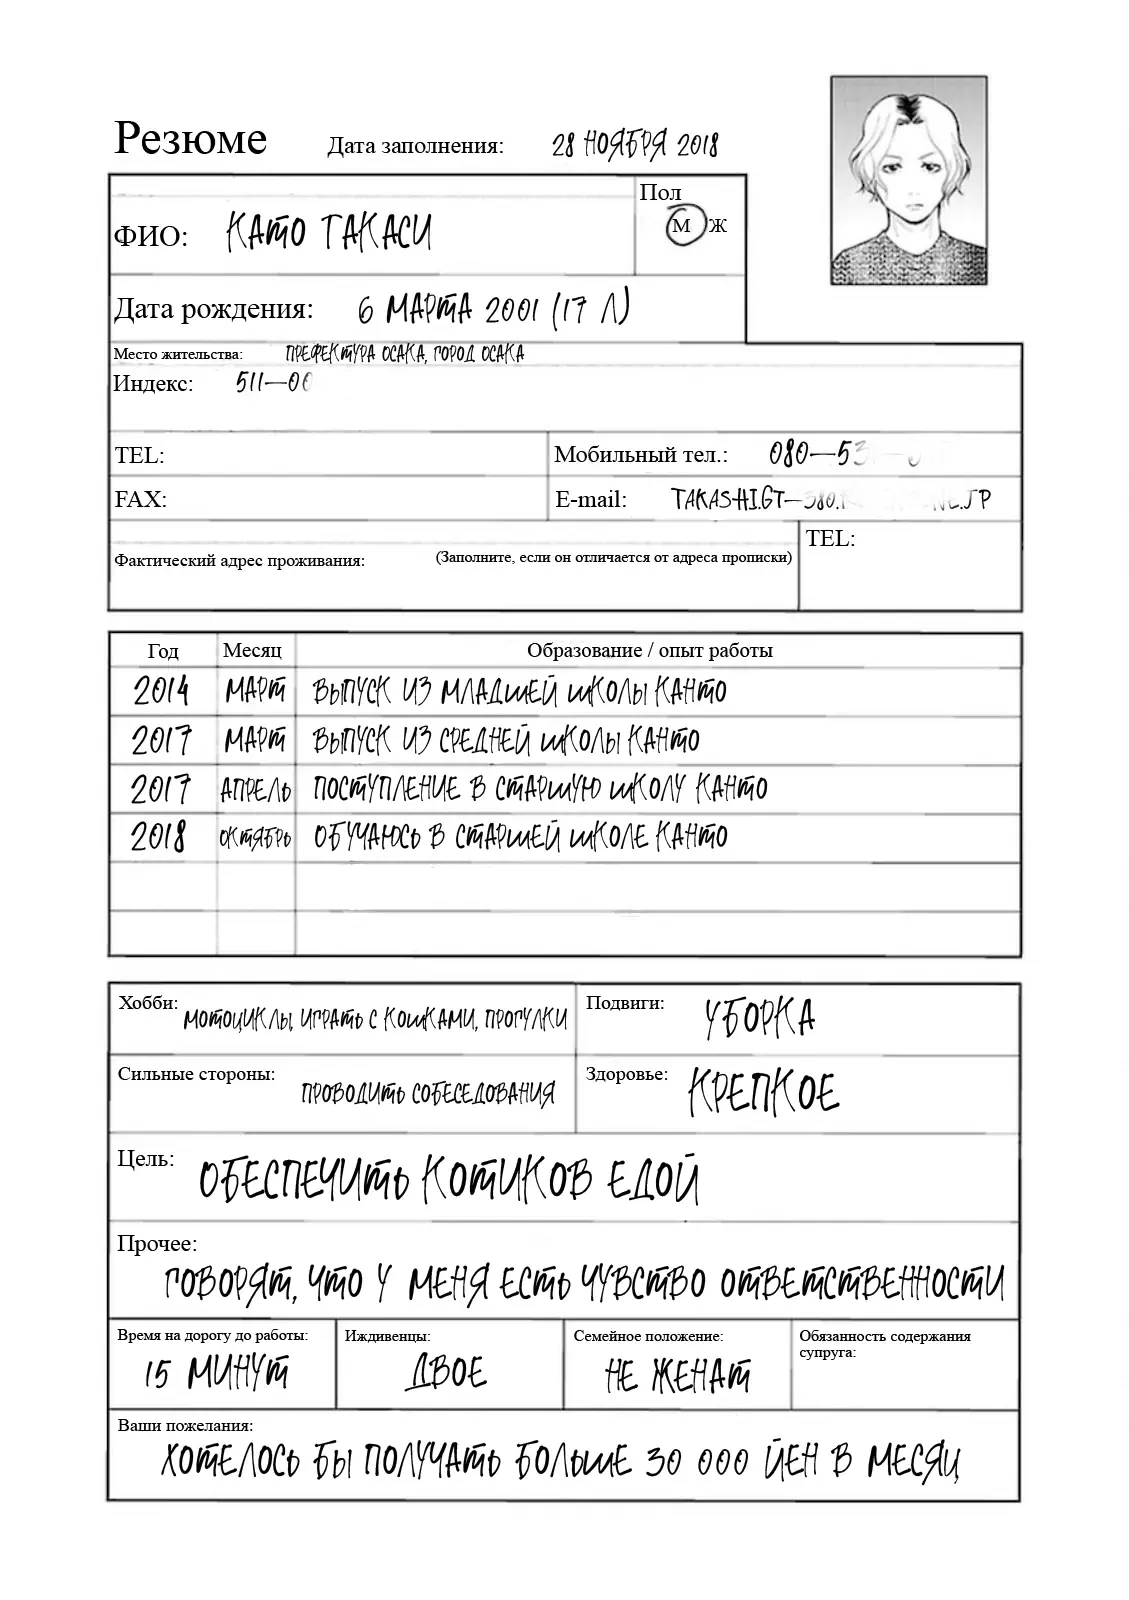 Резюме Дата заполнения: 28 НОЯБРЯ 2018
Пол
ФИО: КАТО ТАКАСИ М Ж
Дата рождения: 6 МАРТА 2001 (17 Л)
Место жительства: ПРЕФЕКТУРА ОСАКА, ГОРОД ОСАКА
Индекс: 511—00
TEL: Мобильный тел.: 080—53
FAX: E-mail: TAKASHI.GT—380. NE.JP
TEL:
Фактический адрес проживания: (Заполните, если он отличается от адреса прописки)
Год Месяц Образование / опыт работы
2014 МАРТ ВЫПУСК ИЗ МЛАДШЕЙ ШКОЛЫ КАНТО
2017 МАРТ ВЫПУСК ИЗ СРЕДНЕЙ ШКОЛЫ КАНТО
2017 АПРЕЛЬ ПОСТУПЛЕНИЕ В СТАРШУЮ ШКОЛУ КАНТО
2018 ОКТЯБРЬ ОБУЧАЮСЬ В СТАРШЕЙ ШКОЛЕ КАНТО
Хобби: МОТОЦИКЛЫ, ИГРАТЬ С КОШКАМИ, ПРОГУЛКИ
Подвиги: УБОРКА
Сильные стороны: ПРОВОДИТЬ СОБЕСЕДОВАНИЯ
Здоровье: КРЕПКОЕ
Цель: ОБЕСПЕЧИТЬ КОТИКОВ ЕДОЙ
Прочее:
ГОВОРЯТ, ЧТО У МЕНЯ ЕСТЬ ЧУВСТВО ОТВЕТСТВЕННОСТИ
Время на дорогу до работы:
15 МИНУТ
Иждивенцы:
ДВОЕ
Семейное положение:
НЕ ЖЕНАТ
Обязанность содержания
супруга:
Ваши пожелания:
ХОТЕЛОСЬ БЫ ПОЛУЧАТЬ БОЛЬШЕ 30 000 ЙЕН В МЕСЯЦ